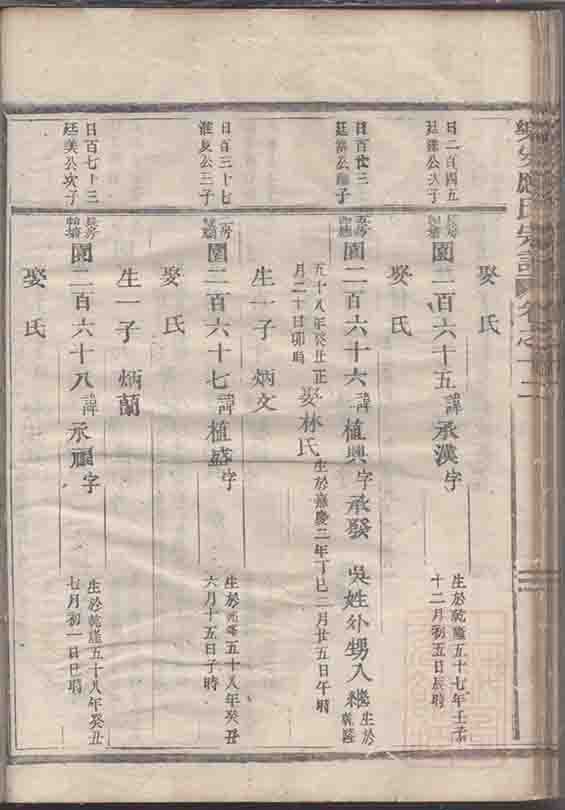 樂安應氏宗譜 卷之十二
娶氏
日二百四五
廷 公次子
長房
園二百六十五諱承漢字
生於乾隆五十七年壬子
十二月初五日辰時
娶氏
日百廿三
廷 公 子
園二百六十六諱植興字承發 吳姓外甥入繼 生於乾隆
五十八年癸丑正
月二十日卯時
娶林氏 生於嘉慶二年丁巳二月廿五日午時
生一子 炳文
日百三十七
公三子
二房
園二百六十七諱植盛字
生於乾隆五十八年癸丑
六月十五日子時
娶氏
生一子 炳蘭
日百七十三
廷美公次子
長房
園二百六十八諱承福字
生於乾隆五十八年癸丑
七月初一日巳時
娶氏